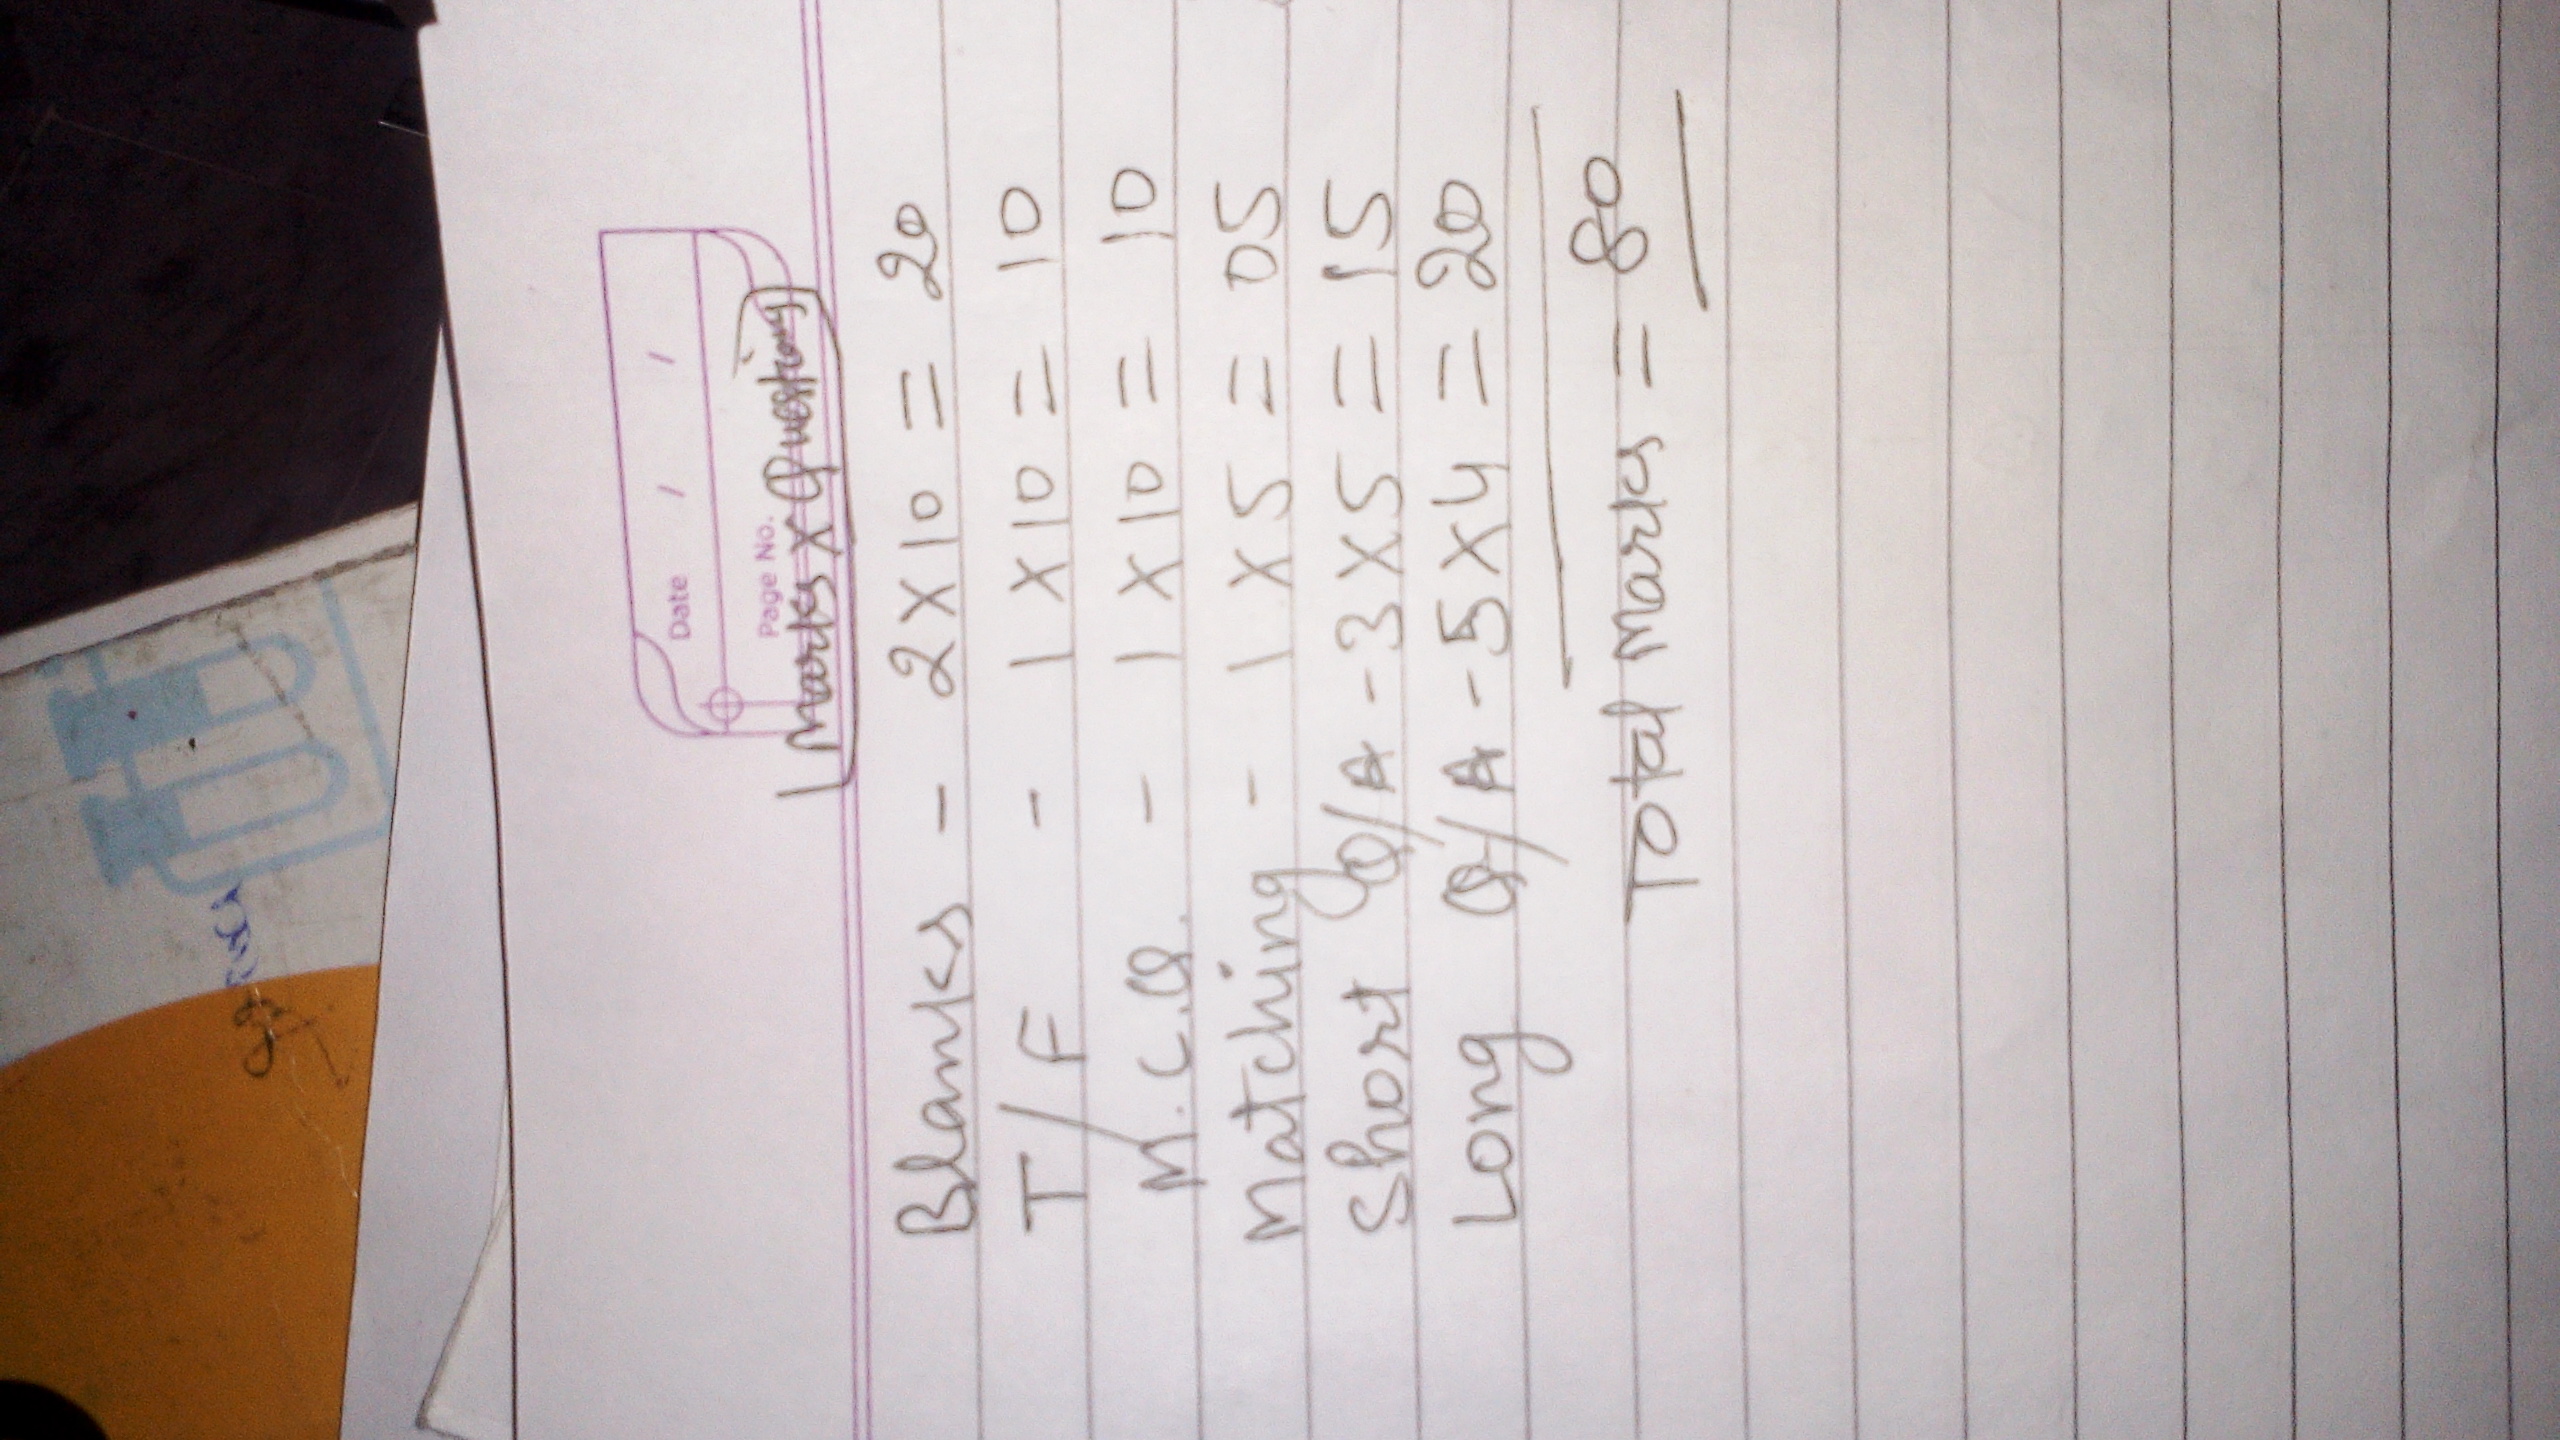 Date / /
Page No.
Marks X Questions
Blanks - 2 X 10 = 20
T/F - 1 X 10 = 10
M.C.Q. - 1 X 10 = 10
Matching - 1 X 5 = 05
Short Q/A - 3 X 5 = 15
Long Q/A - 5 X 4 = 20
Total marks = 80